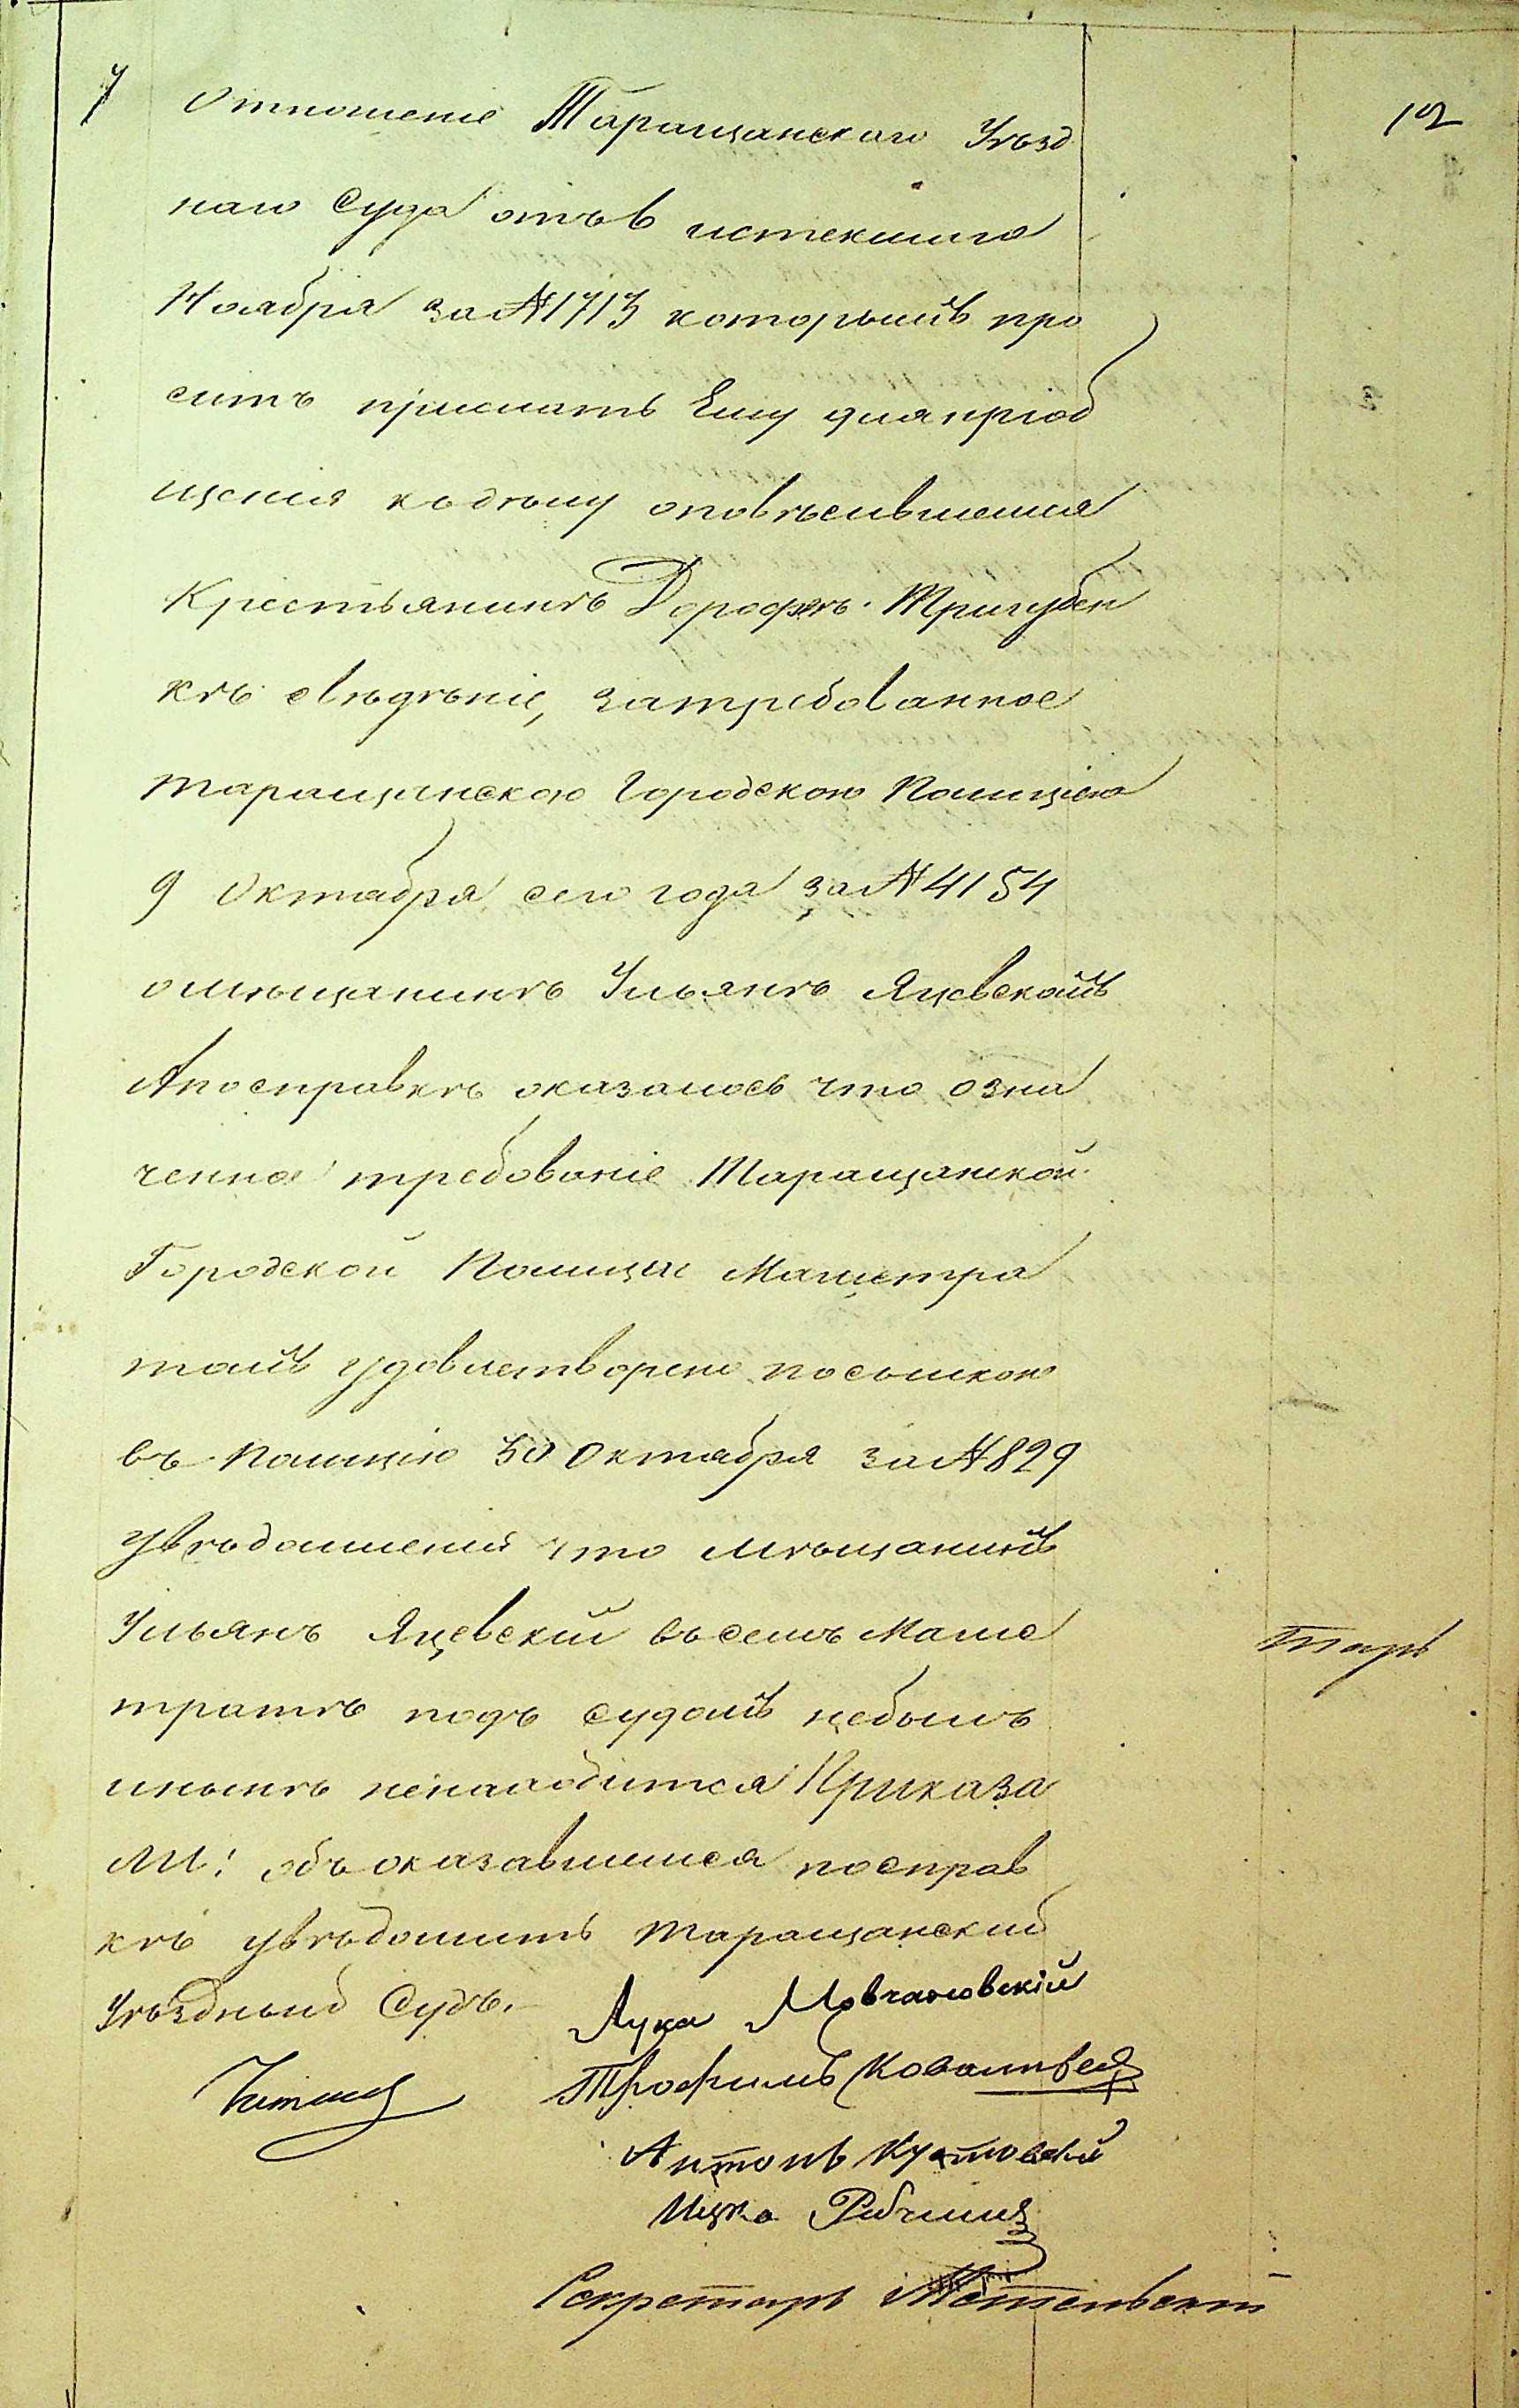 7 Отношеніе Таращанскаго Уѣзд 12
наго Суда отъ 6 истекшаго
Ноября за №1713 которымъ про
ситъ прислать Ему для пріоб
щенія къ дѣлу оповѣсившемся
Крестьянинѣ Дорофеѣ Тригубен
кѣ свѣдѣніе, затребованное
Таращанскою Городскою Полиціею
9 Октября сего года за №4154
о мѣщанинѣ Ульянѣ Яцевскомъ
А по справкѣ оказалось что озна
ченное требованіе Таращанской
Городской Полиціи Магистра
томъ удовлетворено посылкою
въ Полицію 30 Октября за №829
увѣдомленія что мѣщанинъ
Ульянъ Яцевскій въ семъ Маги
стратѣ подъ судомъ небылъ
инынѣ ненаходится Приказа
ли: объ оказавшемся по справ
кѣ увѣдомить Таращанский
Уѣздный Судъ.
Лука Мовчановскій
Трофимъ
Антонъ
Ицко
Секретарь